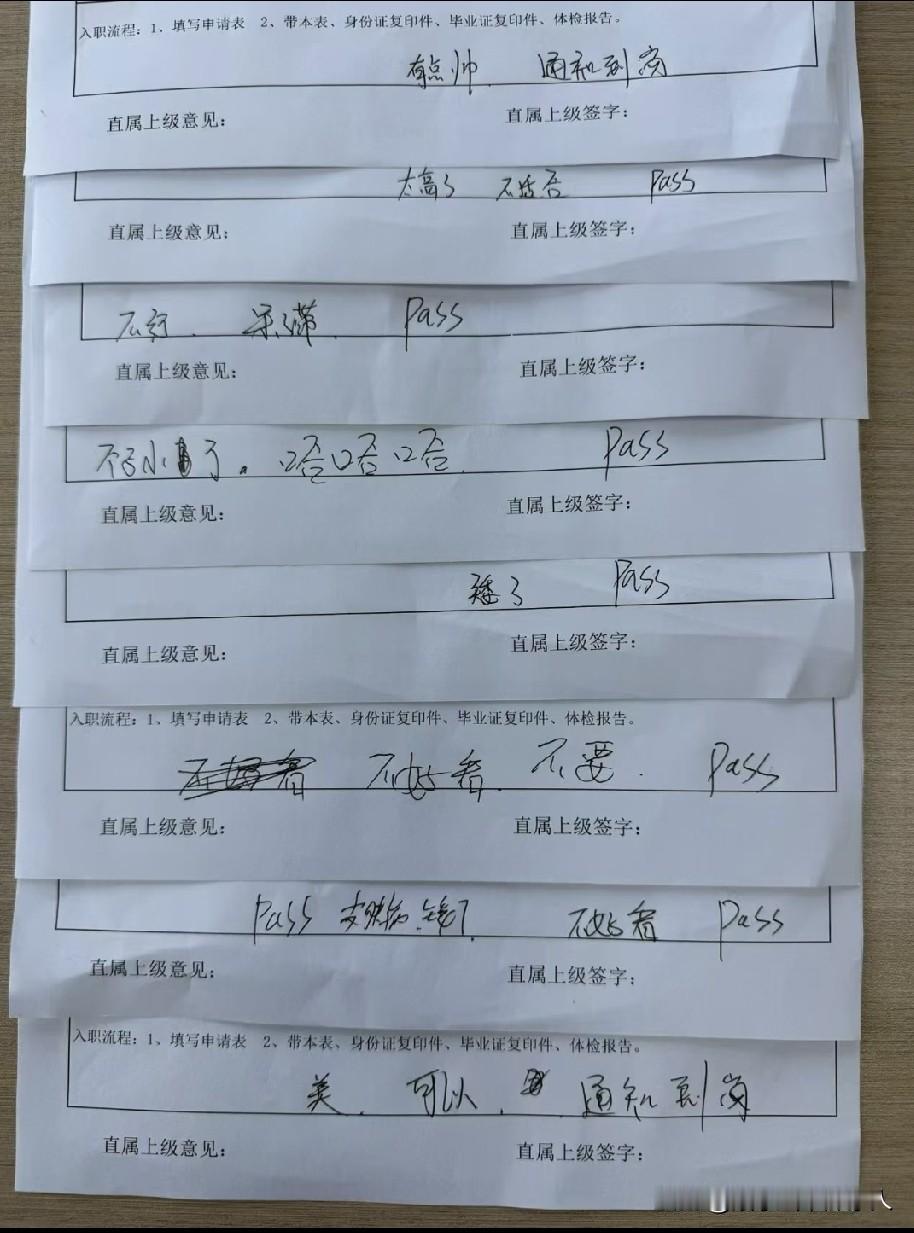 入职流程：1、填写申请表 2、带本表、身份证复印件、毕业证复印件、体检报告。
有点帅. 通知到岗
直属上级意见： 直属上级签字：
太高了 不合适 Pass
直属上级意见： 直属上级签字：
不行. 呆滞. Pass
直属上级意见： 直属上级签字：
了。唔唔唔. Pass
直属上级意见： 直属上级签字：
矮了 Pass
直属上级意见： 直属上级签字：
入职流程：1、填写申请表 2、带本表、身份证复印件、毕业证复印件、体检报告。
不好看 不好看. 不要. Pass
直属上级意见： 直属上级签字：
Pass 不好看 Pass
直属上级意见： 直属上级签字：
入职流程：1、填写申请表 2、带本表、身份证复印件、毕业证复印件、体检报告。
美. 可以. 通知到岗
直属上级意见： 直属上级签字：